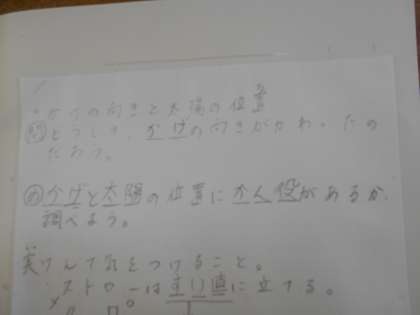 ・かげの向きと太陽の位置
問どうして、かげの向きがかわったの
だろう。
めかげと太陽の位置にかん役があるか
調べよう。
実けんで気をつけること。
ストローはすい直に立てる。